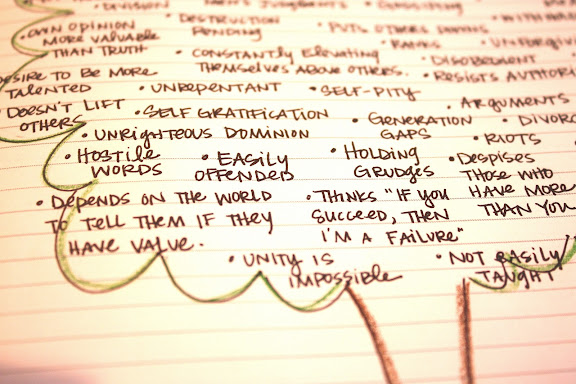 • DIVISION
MEN'S JUDGMENTS
• OWN OPINION
MORE VALUABLE
THAN TRUTH
• DESTRUCTION
PENDING
• PUTS OTHERS DOWN
• RANKS
• CONSTANTLY ELEVATING
THEMSELVES ABOVE OTHERS.
• DISOBEDIENT
DESIRE TO BE MORE
TALENTED
• UNREPENTANT
• SELF-PITY
• RESISTS
• DOESN'T LIFT
OTHERS
• SELF GRATIFICATION
• GENERATION
GAPS
• ARGUMENTS
• UNRIGHTEOUS DOMINION
• RIOTS
• HOSTILE
WORDS
• EASILY
OFFENDED
• HOLDING
GRUDGES
• DESPISES
THOSE WHO
HAVE MORE
THAN YOU
• DEPENDS ON THE WORLD
TO TELL THEM IF THEY
HAVE VALUE.
• THINKS "IF YOU
SUCCEED, THEN
I'M A FAILURE"
• UNITY IS
IMPOSSIBLE
• NOT EASILY
TAUGHT